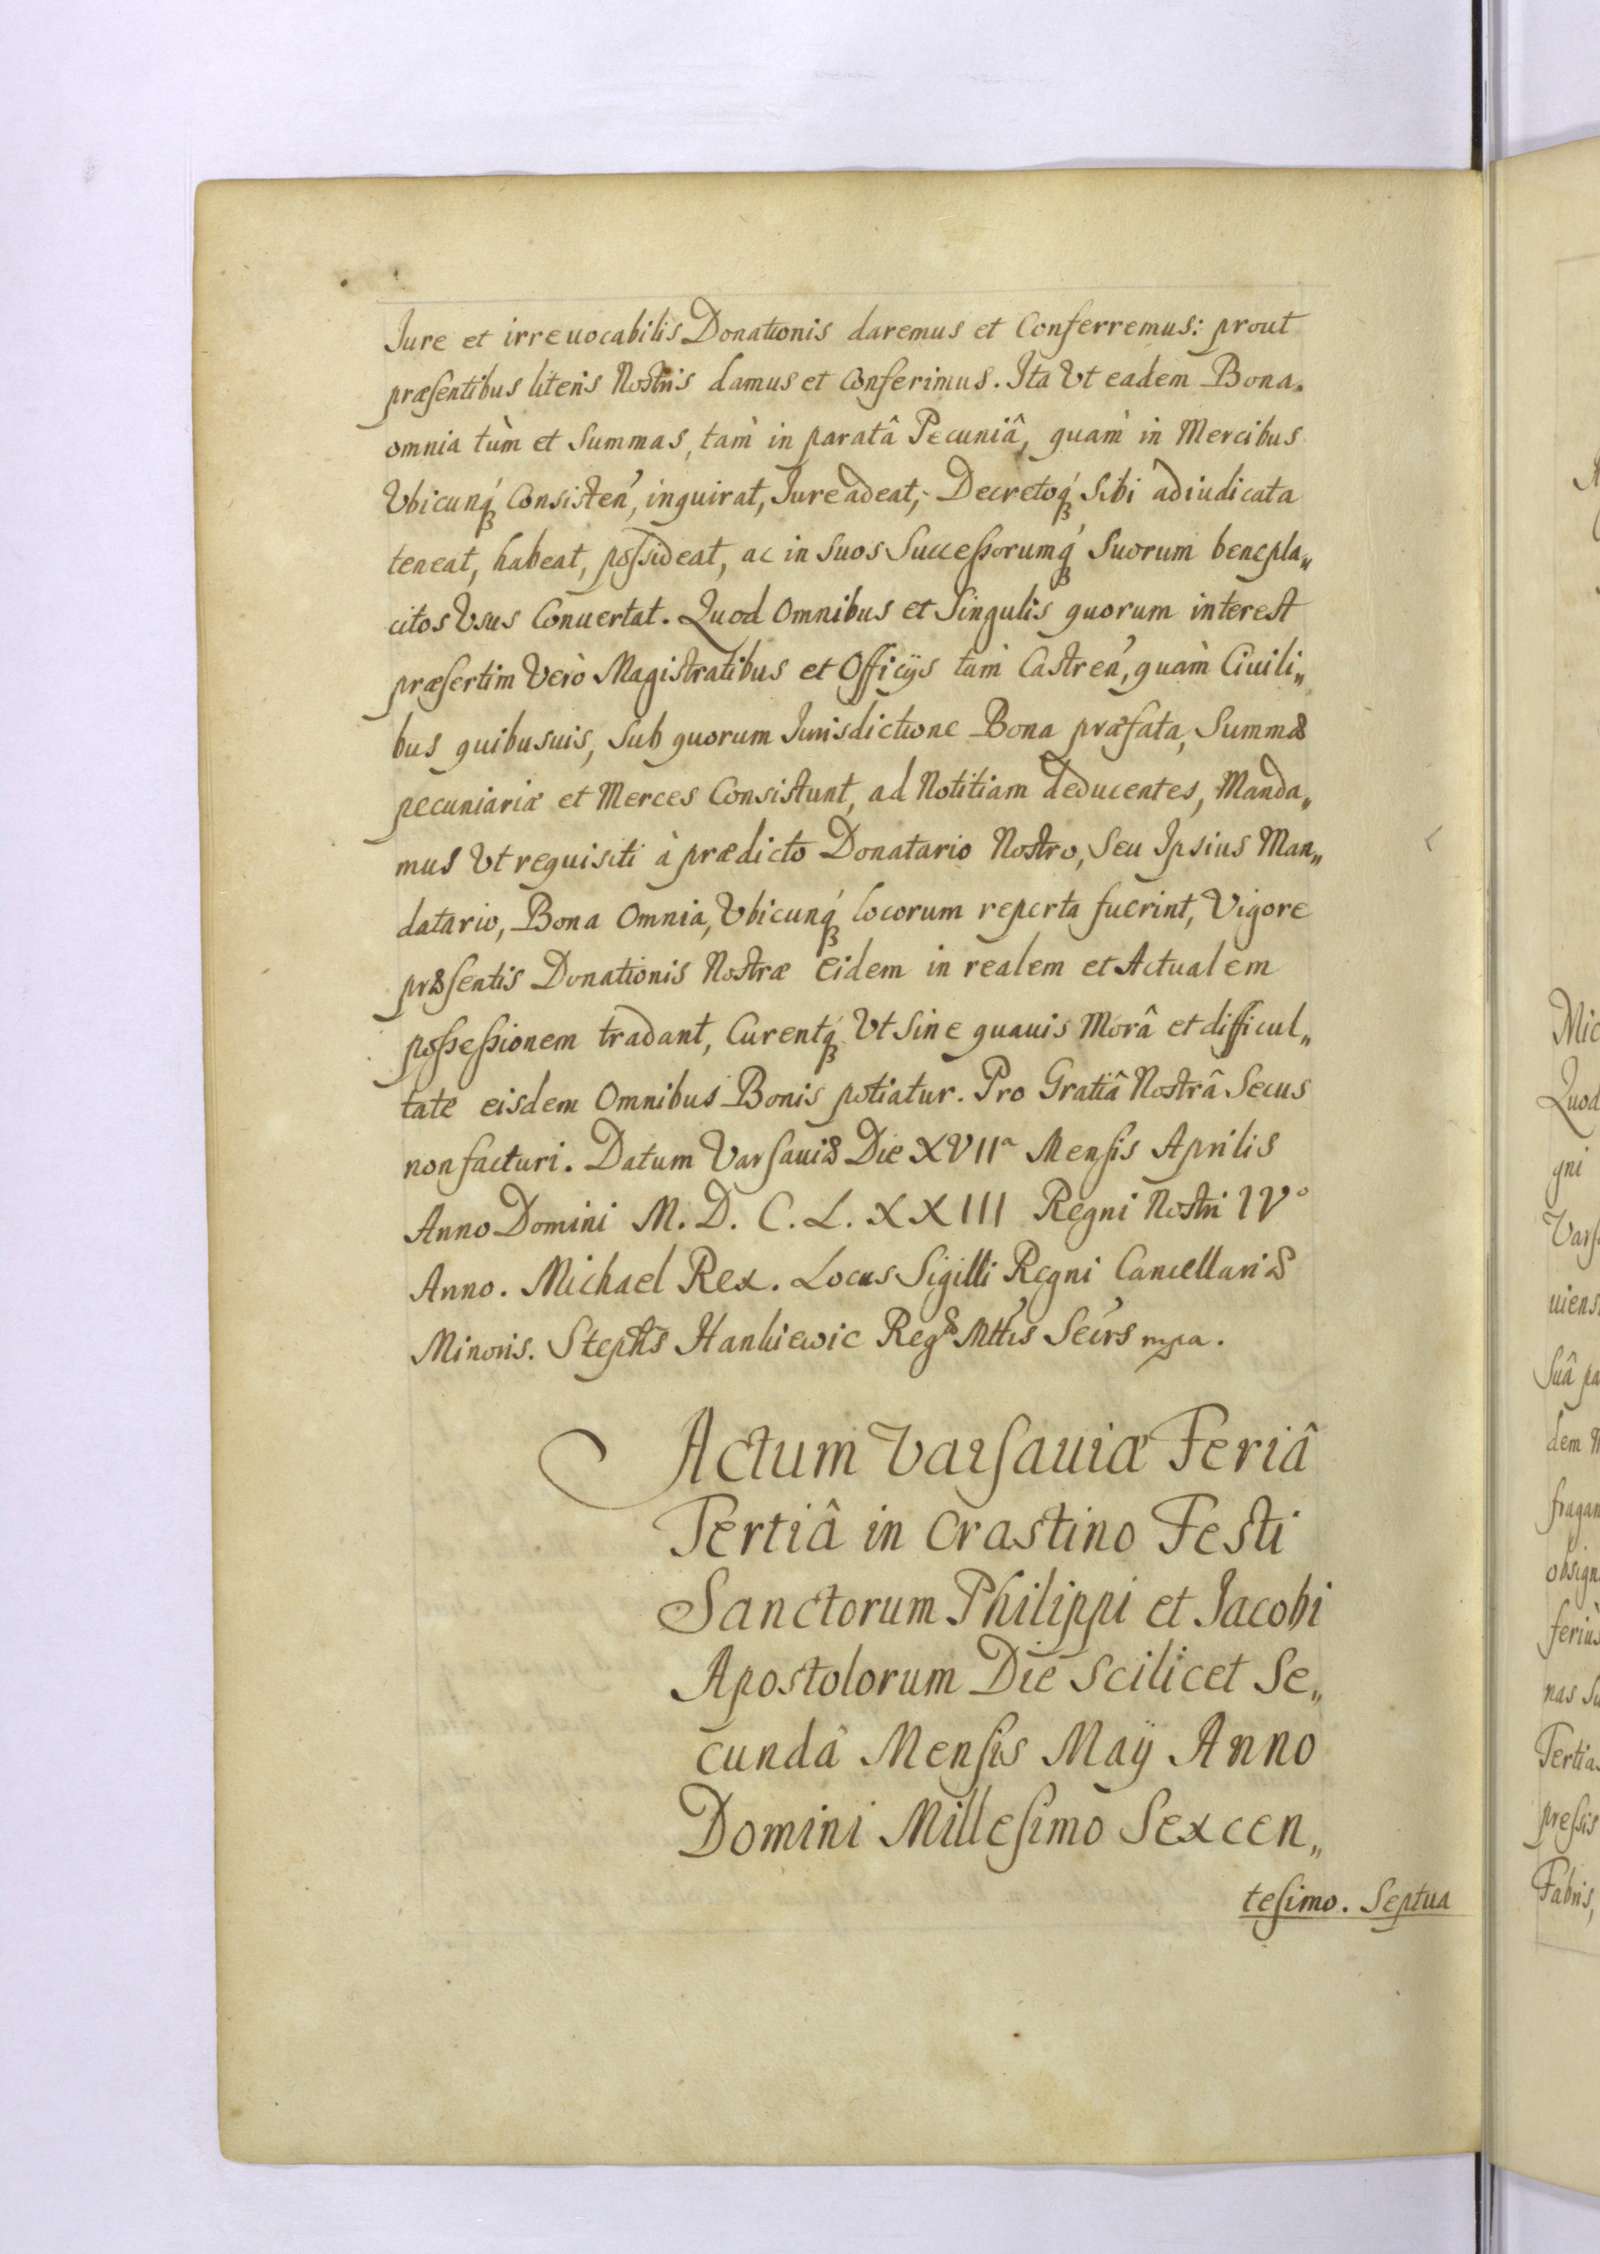 Jure et irreuocabilis Donationis daremus et Conferremus: prout
præsentibus literis Nostris damus et Conferimus. Ita Vt eadem Bona.
omnia tùm et Summas, tam̀ in paratâ Pecuniâ, quam̀ in Mercibus
Vbicunq́ꝫ Consisteń, inquirat, Jure adeat, Decretoq́ꝫ Sibi adiudicata
teneat, habeat, possideat, ac in Suos Successorumq́ꝫ Suorum benepla„
citos Vsus Conuertat. Quod Omnibus et Singulis quorum interest
præsertim Verò Magistratibus et Officijs tam̀ Castreń, quàm Ciuili„
bus quibusuis, Sub quorum Jurisdictione Bona præfata, Summæ
pecuniariæ et Merces Consistunt, ad Notitiam deducentes, Manda„
mus Vt requisiti à prædicto Donatario Nostro, Seu Ipsius Man„
datario, Bona Omnia, Vbicunq́ꝫ locorum reperta fuerint, Vigore
præsentis Donationis Nostræ Eidem in realem et Actualem
possessionem tradant, Curentq́ꝫ Vt Sine quauis Morâ et difficul„
tate eisdem Omnibus Bonis potiatur. Pro Gratiâ Nostrâ Secus
non facturi. Datum Varsauiæ Die XVIIa Mensis Aprilis
Anno Domini M. D. C. L. XXIII Regni Nostri IVo
Anno. Michael Rex. Locus Sigilli Regni Cancellariæ
Minoris. Stephs Hankiewic Regæ Mttis Secrs mpa.
Actum Varsauiæ Feriâ
Tertiâ in Crastino Festi
Sanctorum Philippi et Jacobi
Apostolorum Die Scilicet Se„
cundâ Mensis Maij Anno
Domini Millesimo Sexcen„
tesimo. Septua
Mic
Quod
gni
Vars
uiens
Suâ pa
dem
fragan
obsign
feriùs
nas Su
Tertia
pressis
Fabris,